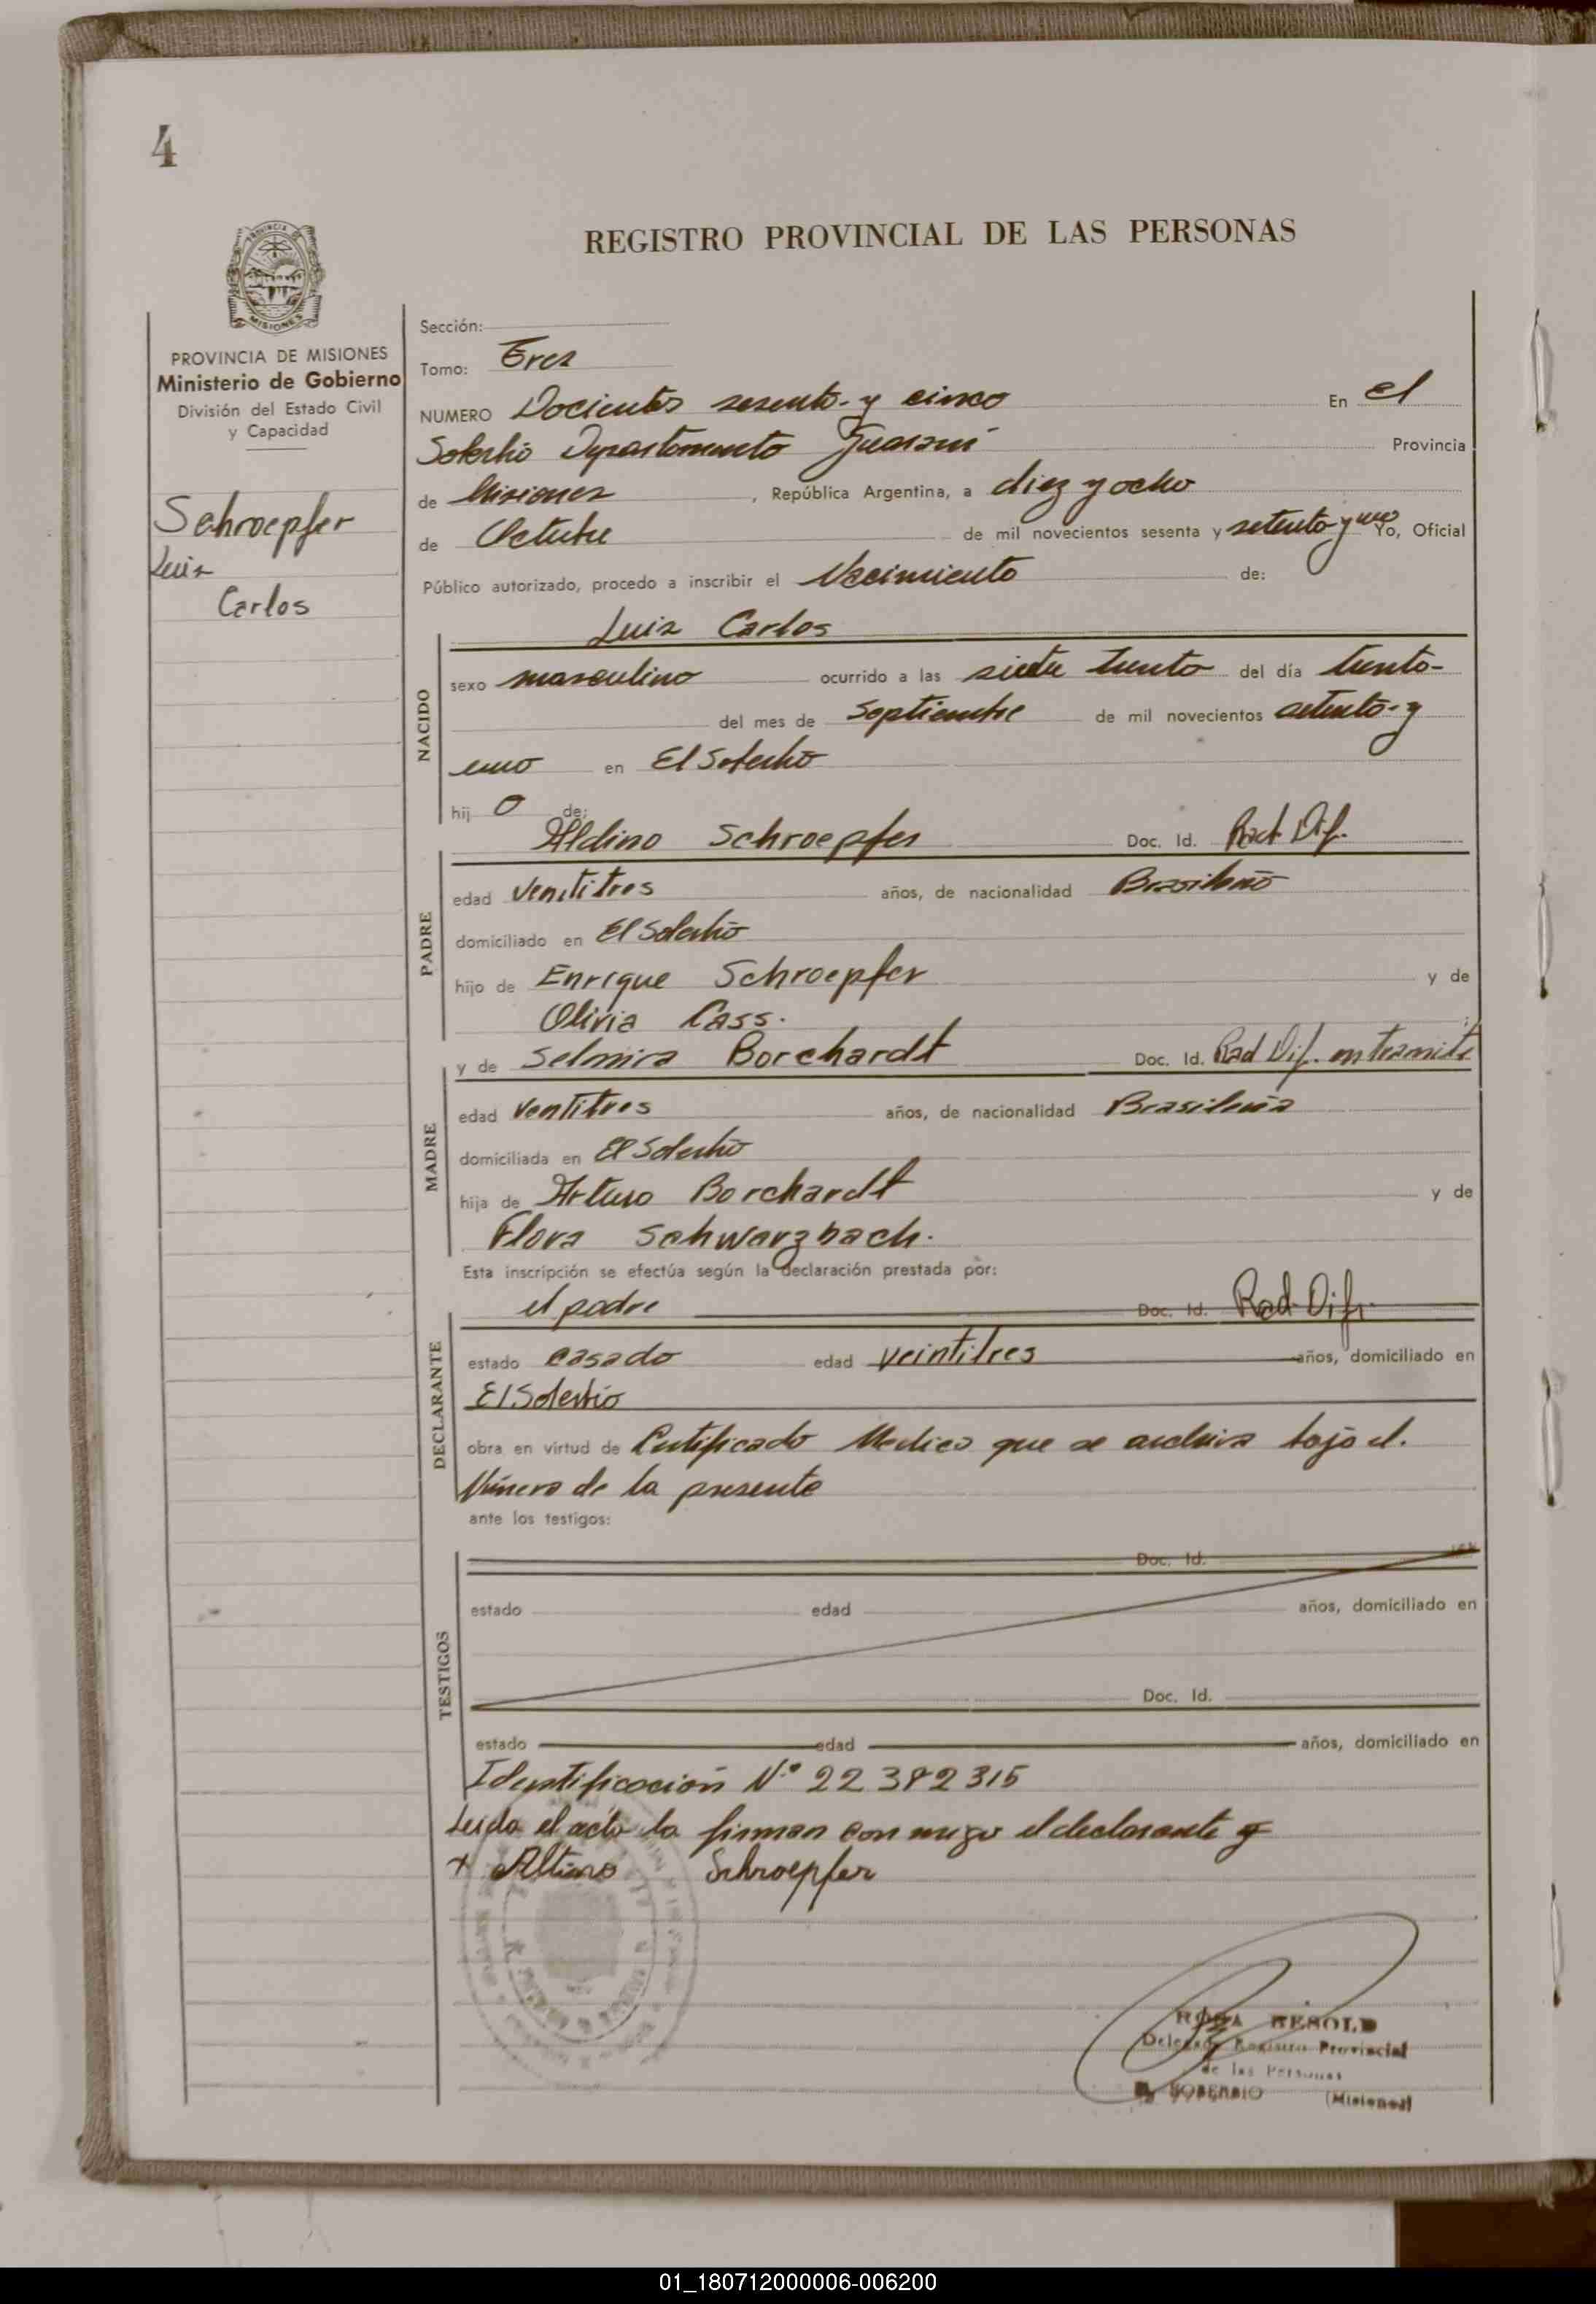 4
REGISTRO PROVINCIAL DE LAS PERSONAS
PROVINCIA DE
MISIONES
PROVINCIA DE MISIONES
Ministerio de Gobierno
División del Estado Civil
y Capacidad
Schroepfer
Luis
Carlos
Sección:
Tomo: Tres
NUMERO Docientos sesenta y cinco En El
Soberbio Departamento Guaraní Provincia
de Misiones, República Argentina, a diez y ocho
de Octubre de mil novecientos sesenta y setenta y uno Yo, Oficial
Público autorizado, procedo a inscribir el Nacimiento de:
Luis Carlos
NACIDO
sexo masculino ocurrido a las siete treinta del día treinta
del mes de Septiembre de mil novecientos setenta y
uno en El Soberbio
hijo de:
Aldino Schroepfer Doc. Id. Rad. Dif.
PADRE
edad ventitres años, de nacionalidad Brasileño
domiciliado en El Soberbio
hijo de Enrique Schroepfer y de
Olivia Cass.
y de Selmira Borchardt Doc. Id. Rad Dif. en tramite
MADRE
edad ventitres años, de nacionalidad Brasileña
domiciliada en El Soberbio
hija de Arturo Borchardt y de
Flora Schwarzbach.
Esta inscripción se efectúa según la declaración prestada por:
el padre Doc. Id. Rad. Dif.
DECLARANTE
estado casado edad veintitres años, domiciliado en
El Soberbio
obra en virtud de Certificado Medico que se archiva bajo el.
Número de la presente
ante los testigos:
TESTIGOS
Doc. Id.
estado edad años, domiciliado en
Doc. Id.
estado edad años, domiciliado en
Identificación N.º 22 382 315
Leida el acta la firman con migo el declarante y
+ Altino Schroepfer
ROSA BESOLD
Delegado Registro Provincial
de las Personas
EL SOBERBIO (Misiones)
01_180712000006-006200